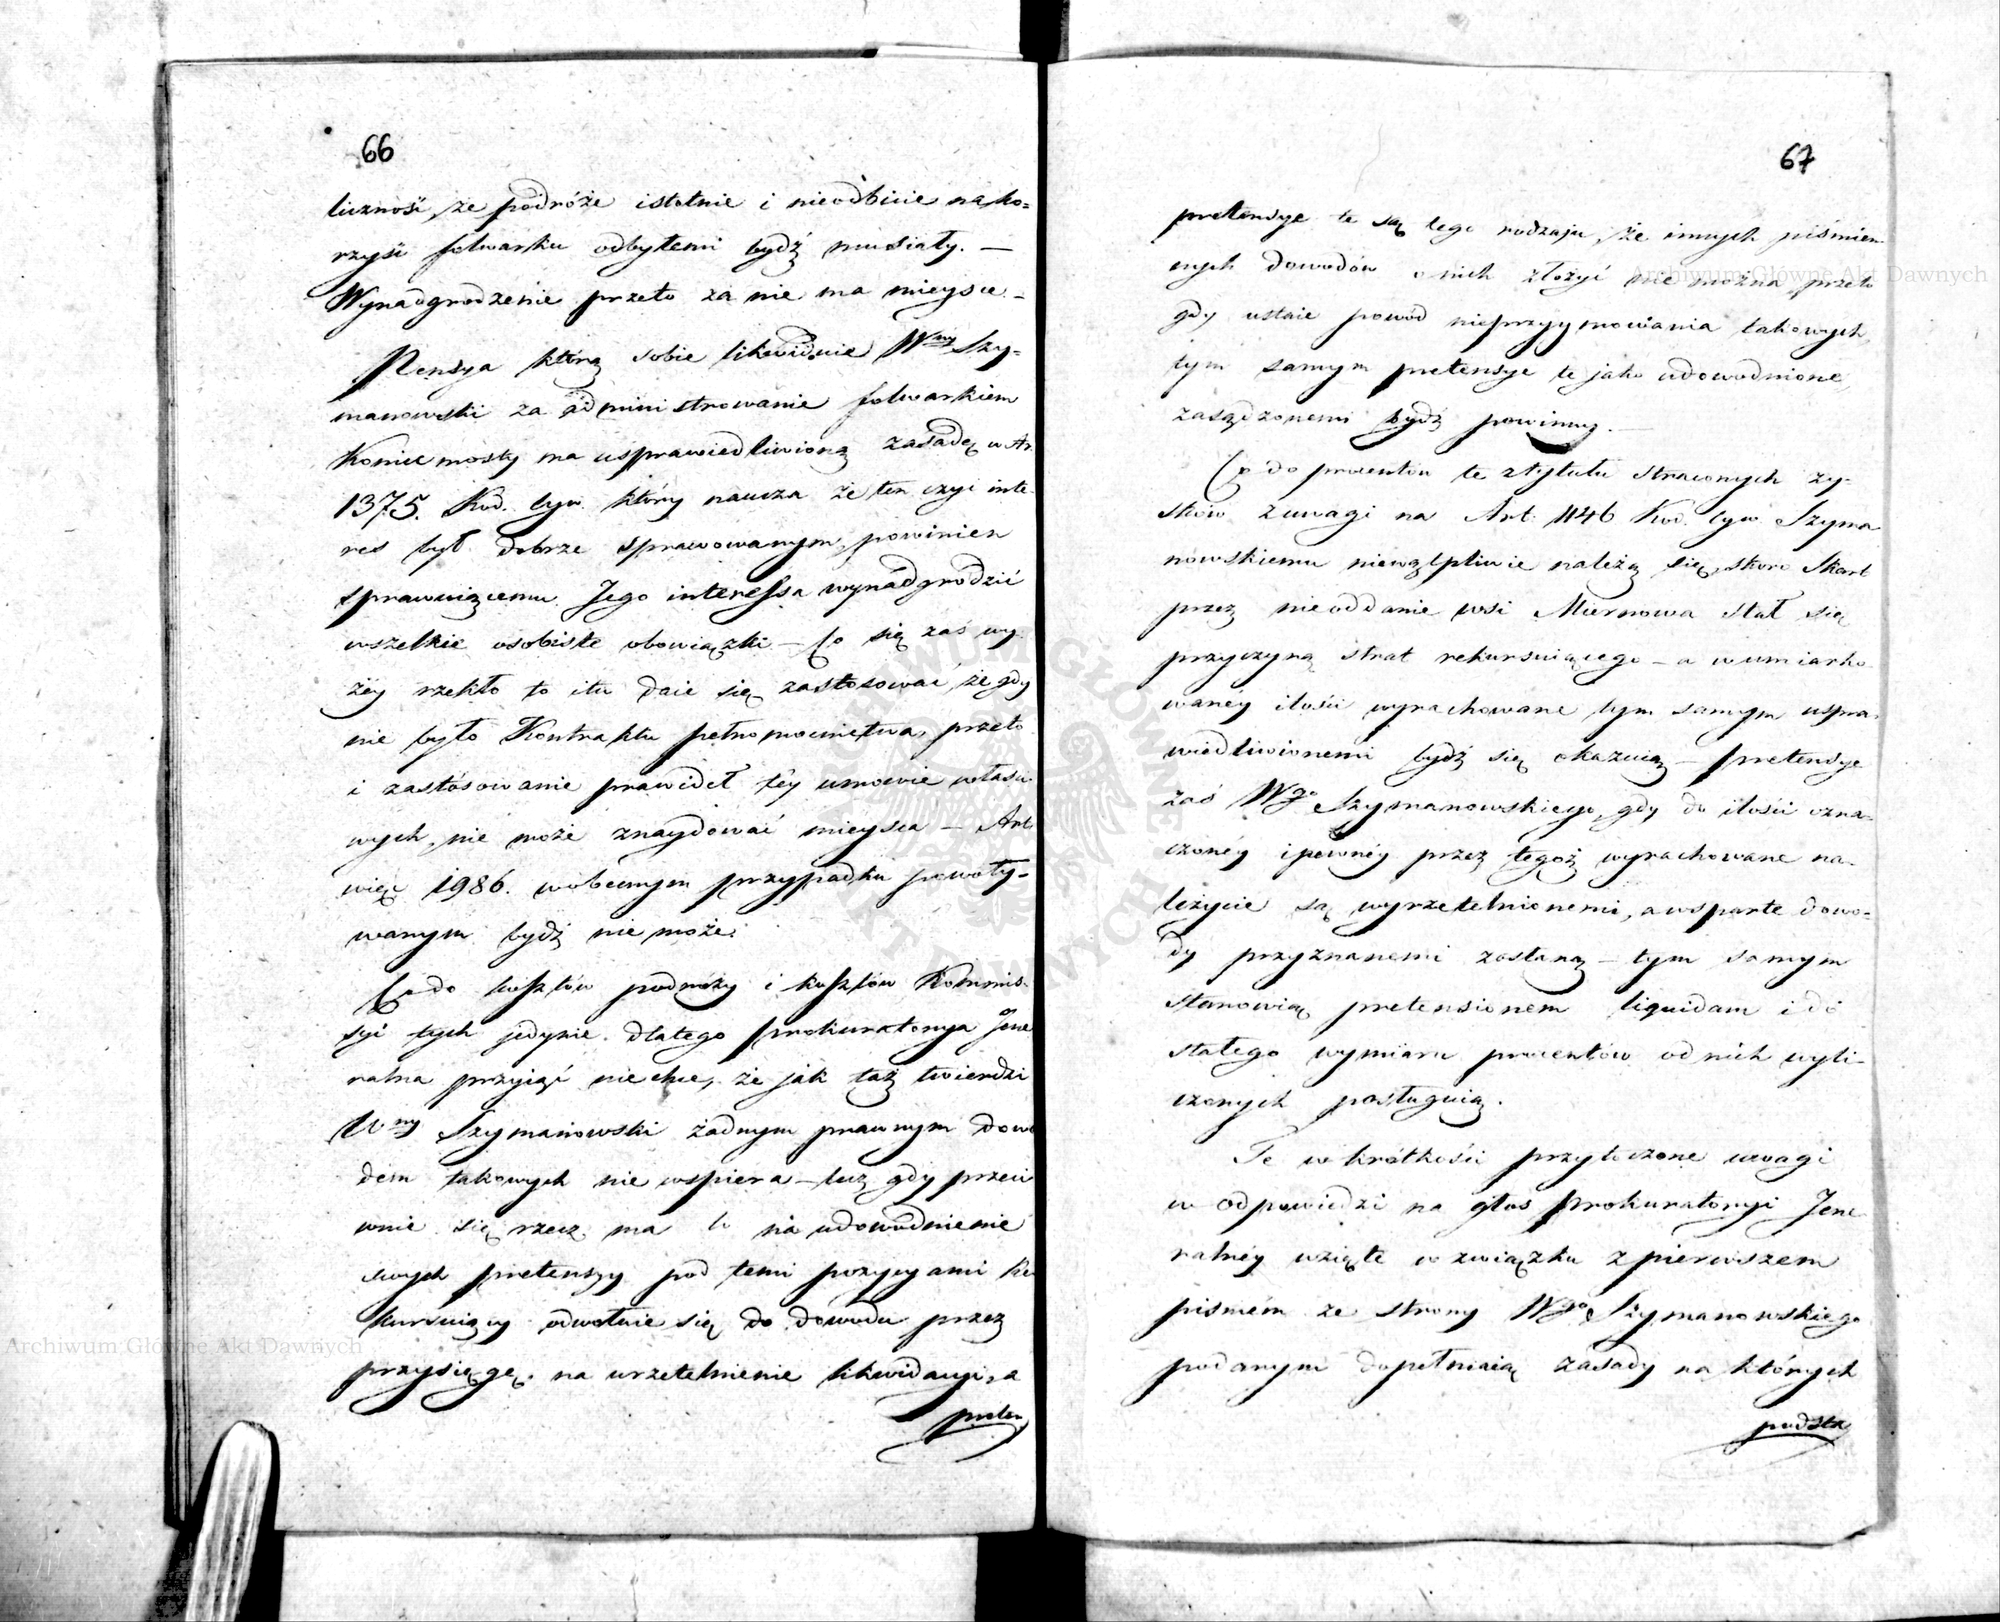 66
liczność, że podróże istotnie i nieodbicie na ko-
rzyść folwarku odbytemi bydź musiały. —
Wynadgrodzenie przeto za nie ma mieysce. -
Pensya którą sobie likwiduie Wny Szy-
manowski za administrowanie folwarkiem
Koniemosty ma usprawiedliwioną zasadę w Ar.
1375. Kod. cyw. który naucza że ten czyi inte-
res był dobrze sprawowanym, powinien
sprawuiącemu Jego interessa wynadgrodzić
wszelkie osobiste obowiązki — Co się zaś wy-
żéy rzekło to i tu daie się zastosować, że gdy
nie było Kontraktu pełnomocnictwa, przeto
i zastósowanie prawideł téy umowie właści
wych, nie może znaydować mieysca — Art.
więc 1986. w obecnym przypadku powoły-
wanym bydź nie może.
Co do kosztów podróży i kosztów Kommis-
syi tych jedynie dlatego Prokuratorya Jene
ralna przyiąć nie chce, że jak taż twierdzi
Wny Szymanowski żadnym prawnym dowo
dem takowych nie wspiera — lecz gdy przeci
wnie się rzecz ma to na udowodnienie
swych pretensyy pod temi pozycyami Re
kursuiący odwołuie się do dowodu przez
przysięgę. na urzetelnienie likwidacyi, a
preten
67
pretensye te są tego rodzaju, że innych piśmien
nych dowodów o nich złożyć nie można, przeto
gdy ustaie powód nieprzyymowania takowych,
tym samym pretensye te jako udowodnione,
zasądzonemi bydź powinny. —
Co do procentów te z tytułu straconych zy-
sków z uwagi na Art. 1146 Kod. cyw. Szyma
nowskiemu niewątpliwie należą się, skoro Skarb
przez nieoddanie wsi Miernowa stał się
przyczyną strat rekursuiącego — a w umiarko
wanéy ilości wyrachowane tym samym uspra-
wiedliwionemi bydź się okazuią — pretensye
zaś Wgo Szymanowskiego, gdy do ilości ozna-
czonéy i pewnéy przez tegoż wyrachowane na-
leżycie są wyrzetelnionemi, a wsparte dowo-
dy przyznanemi zostaną — tym samym
stanowią pretensionem liquidam i do
stałego wymiaru procentów od nich wyli-
czonych posługuią.
Te w krótkości przytoczone uwagi
w odpowiedzi na głos Prokuratoryi Jene
ralnéy wzięte w związku z pierwszem
pismem ze strony Wgo Szymanowskiego
podanym dopełniaią zasady na których
podsta
Archiwum Główne Akt Dawnych
Archiwum Główne Akt Dawnych
ARCHIWUM GŁÓWNE AKT DAWNYCH